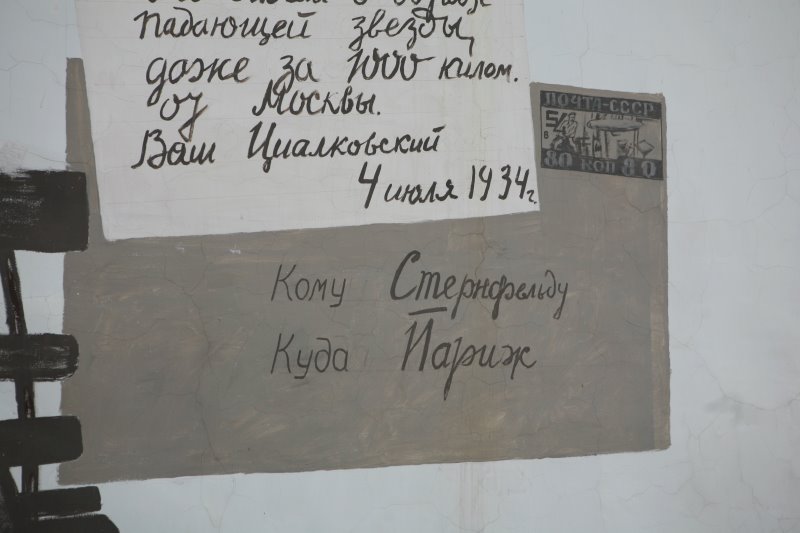 падающей звезды,
даже за 1000 килом.
от Москвы.
Ваш Циалковский
4 июля 1934г.
ПОЧТА-СССР
80 КОП 80
Кому Стернфельду
Куда Париж